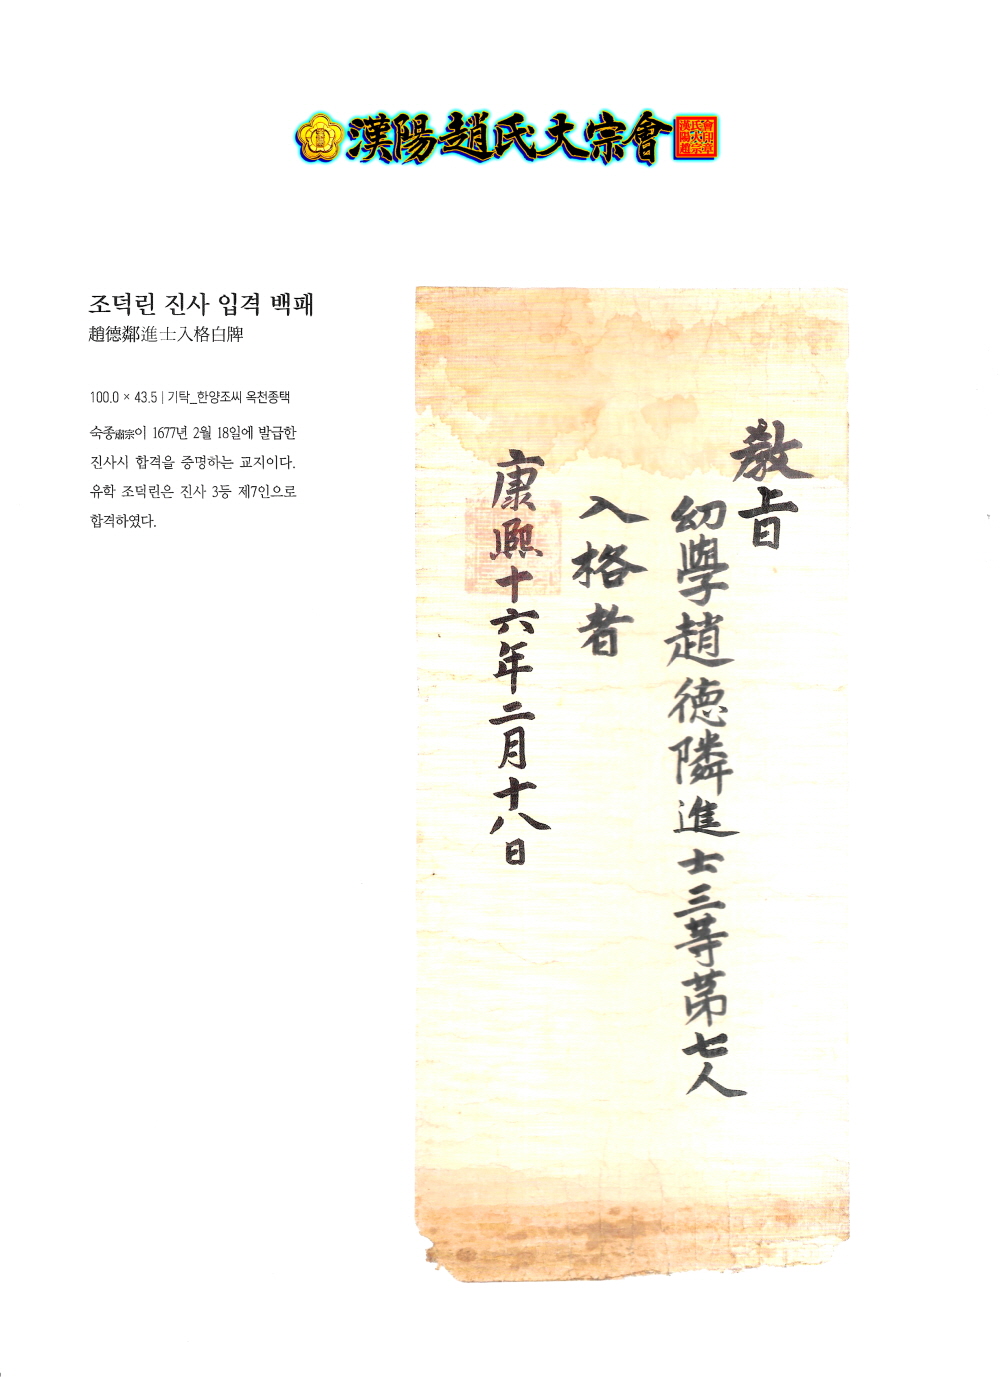 漢陽趙氏大宗會
조덕린 진사 입격 백패
趙德鄰進士入格白牌
100.0 × 43.5 | 기탁_한양조씨 옥천종택
숙종肅宗이 1677년 2월 18일에 발급한
진사시 합격을 증명하는 교지이다.
유학 조덕린은 진사 3등 제7인으로
합격하였다.
敎旨
幼學趙德隣進士三等第七人
入格者
康熙十六年二月十八日